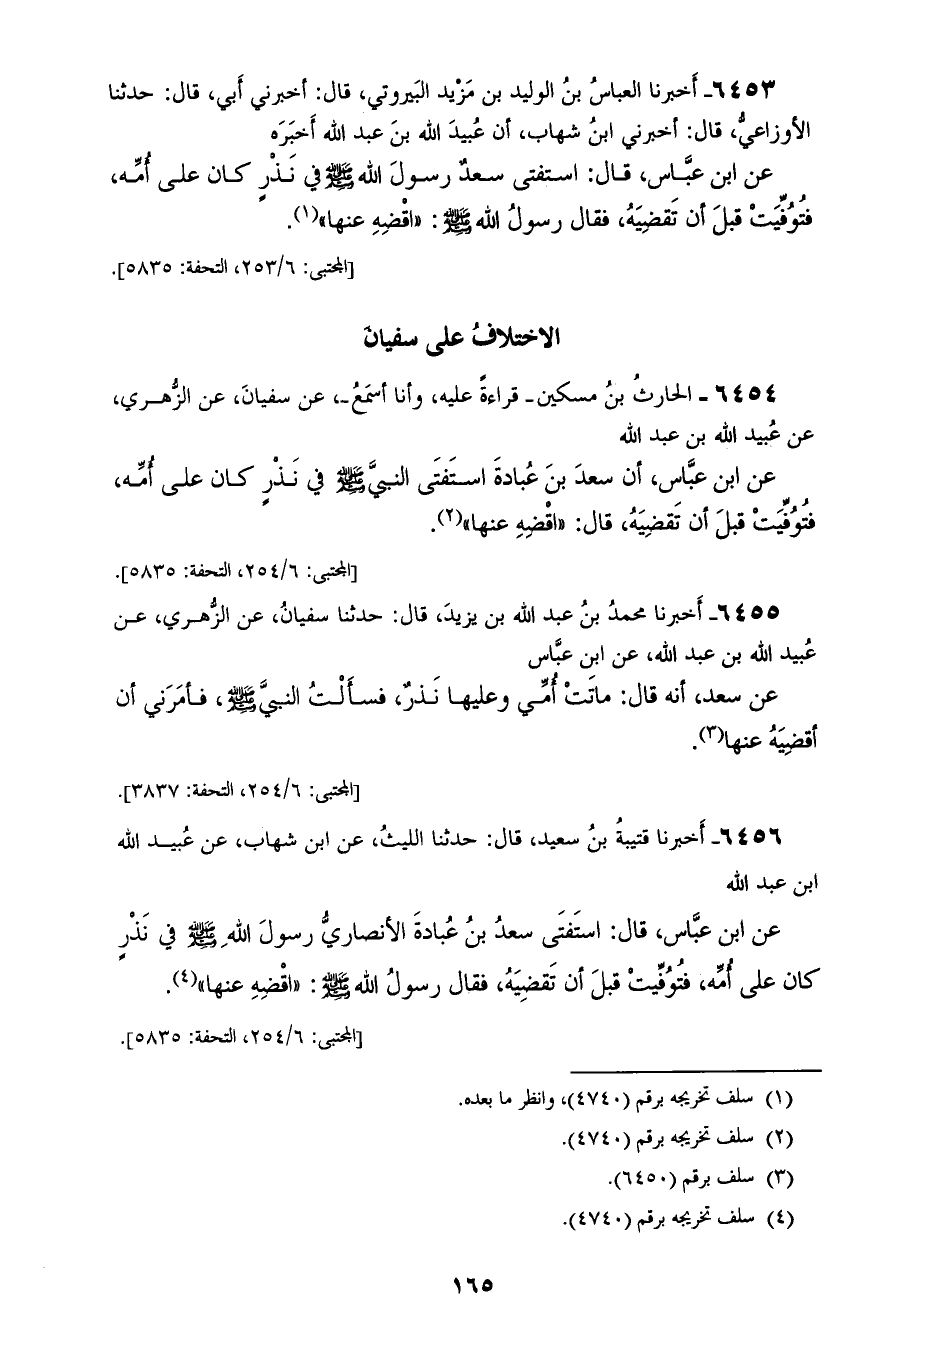 ٦٤٥٣ـ أَخبرنا العباسُ بنُ الوليد بن مَزْيد البَيروتي، قال: أخبرني أَبي، قال: حدثنا
الأوزاعيُّ، قال: أخبرني ابنُ شهاب، أن عُبيدَ الله بنَ عبد الله أَخبَرَه
عن ابن عبَّاس، قال: استفتى سعدٌ رسولَ الله ﷺ في نَذْرٍ كان على أُمِّه،
فتُوُفِّيَتْ قبلَ أن تَقضِيَهُ، فقال رسولُ الله ﷺ: «اقْضِهِ عنها»(١).
[المجتبى: ٢٥٣/٦، التحفة: ٥٨٣٥].
الاختلافُ على سفيانَ
٦٤٥٤ ـ الحارثُ بنُ مسكين ـ قراءةً عليه، وأنا أسمَعُ ـ، عن سفيانَ، عن الزُّهري،
عن عُبيد الله بن عبد الله
عن ابن عبَّاس، أن سعدَ بنَ عُبادةَ استَفتَى النبيَّ ﷺ في نَذْرٍ كان على أُمِّه،
فتُوُفِّيَتْ قبلَ أن تَقضِيَهُ، قال: «اقْضِهِ عنها»(٢).
[المجتبى: ٢٥٤/٦، التحفة: ٥٨٣٥].
٦٤٥٥ـ أَخبرنا محمدُ بنُ عبد الله بن يزيدَ، قال: حدثنا سفيانُ، عن الزُّهري، عن
عُبيد الله بن عبد الله، عن ابن عبَّاس
عن سعد، أنه قال: ماتَتْ أُمِّي وعليها نَذرٌ، فسأَلْتُ النبيَّ ﷺ، فأمَرَني أن
أقضِيَهُ عنها(٣).
[المجتبى: ٢٥٤/٦، التحفة: ٣٨٣٧].
٦٤٥٦ـ أَخبرنا قتيبةُ بنُ سعيد، قال: حدثنا الليثُ، عن ابن شهاب، عن عُبيد الله
ابن عبد الله
عن ابن عبَّاس، قال: استَفتَى سعدُ بنُ عُبادةَ الأنصاريُّ رسولَ اللهِ ﷺ في نَذْرٍ
كان على أُمِّه، فتُوُفِّيتْ قبلَ أن تَقضِيَهُ، فقال رسولُ الله ﷺ: «اقْضِهِ عنها»(٤).
[المجتبى: ٢٥٤/٦، التحفة: ٥٨٣٥].
(١) سلف تخريجه برقم (٤٧٤٠)، وانظر ما بعده.
(٢) سلف تخريجه برقم (٤٧٤٠).
(٣) سلف برقم (٦٤٥٠).
(٤) سلف تخريجه برقم (٤٧٤٠).
١٦٥